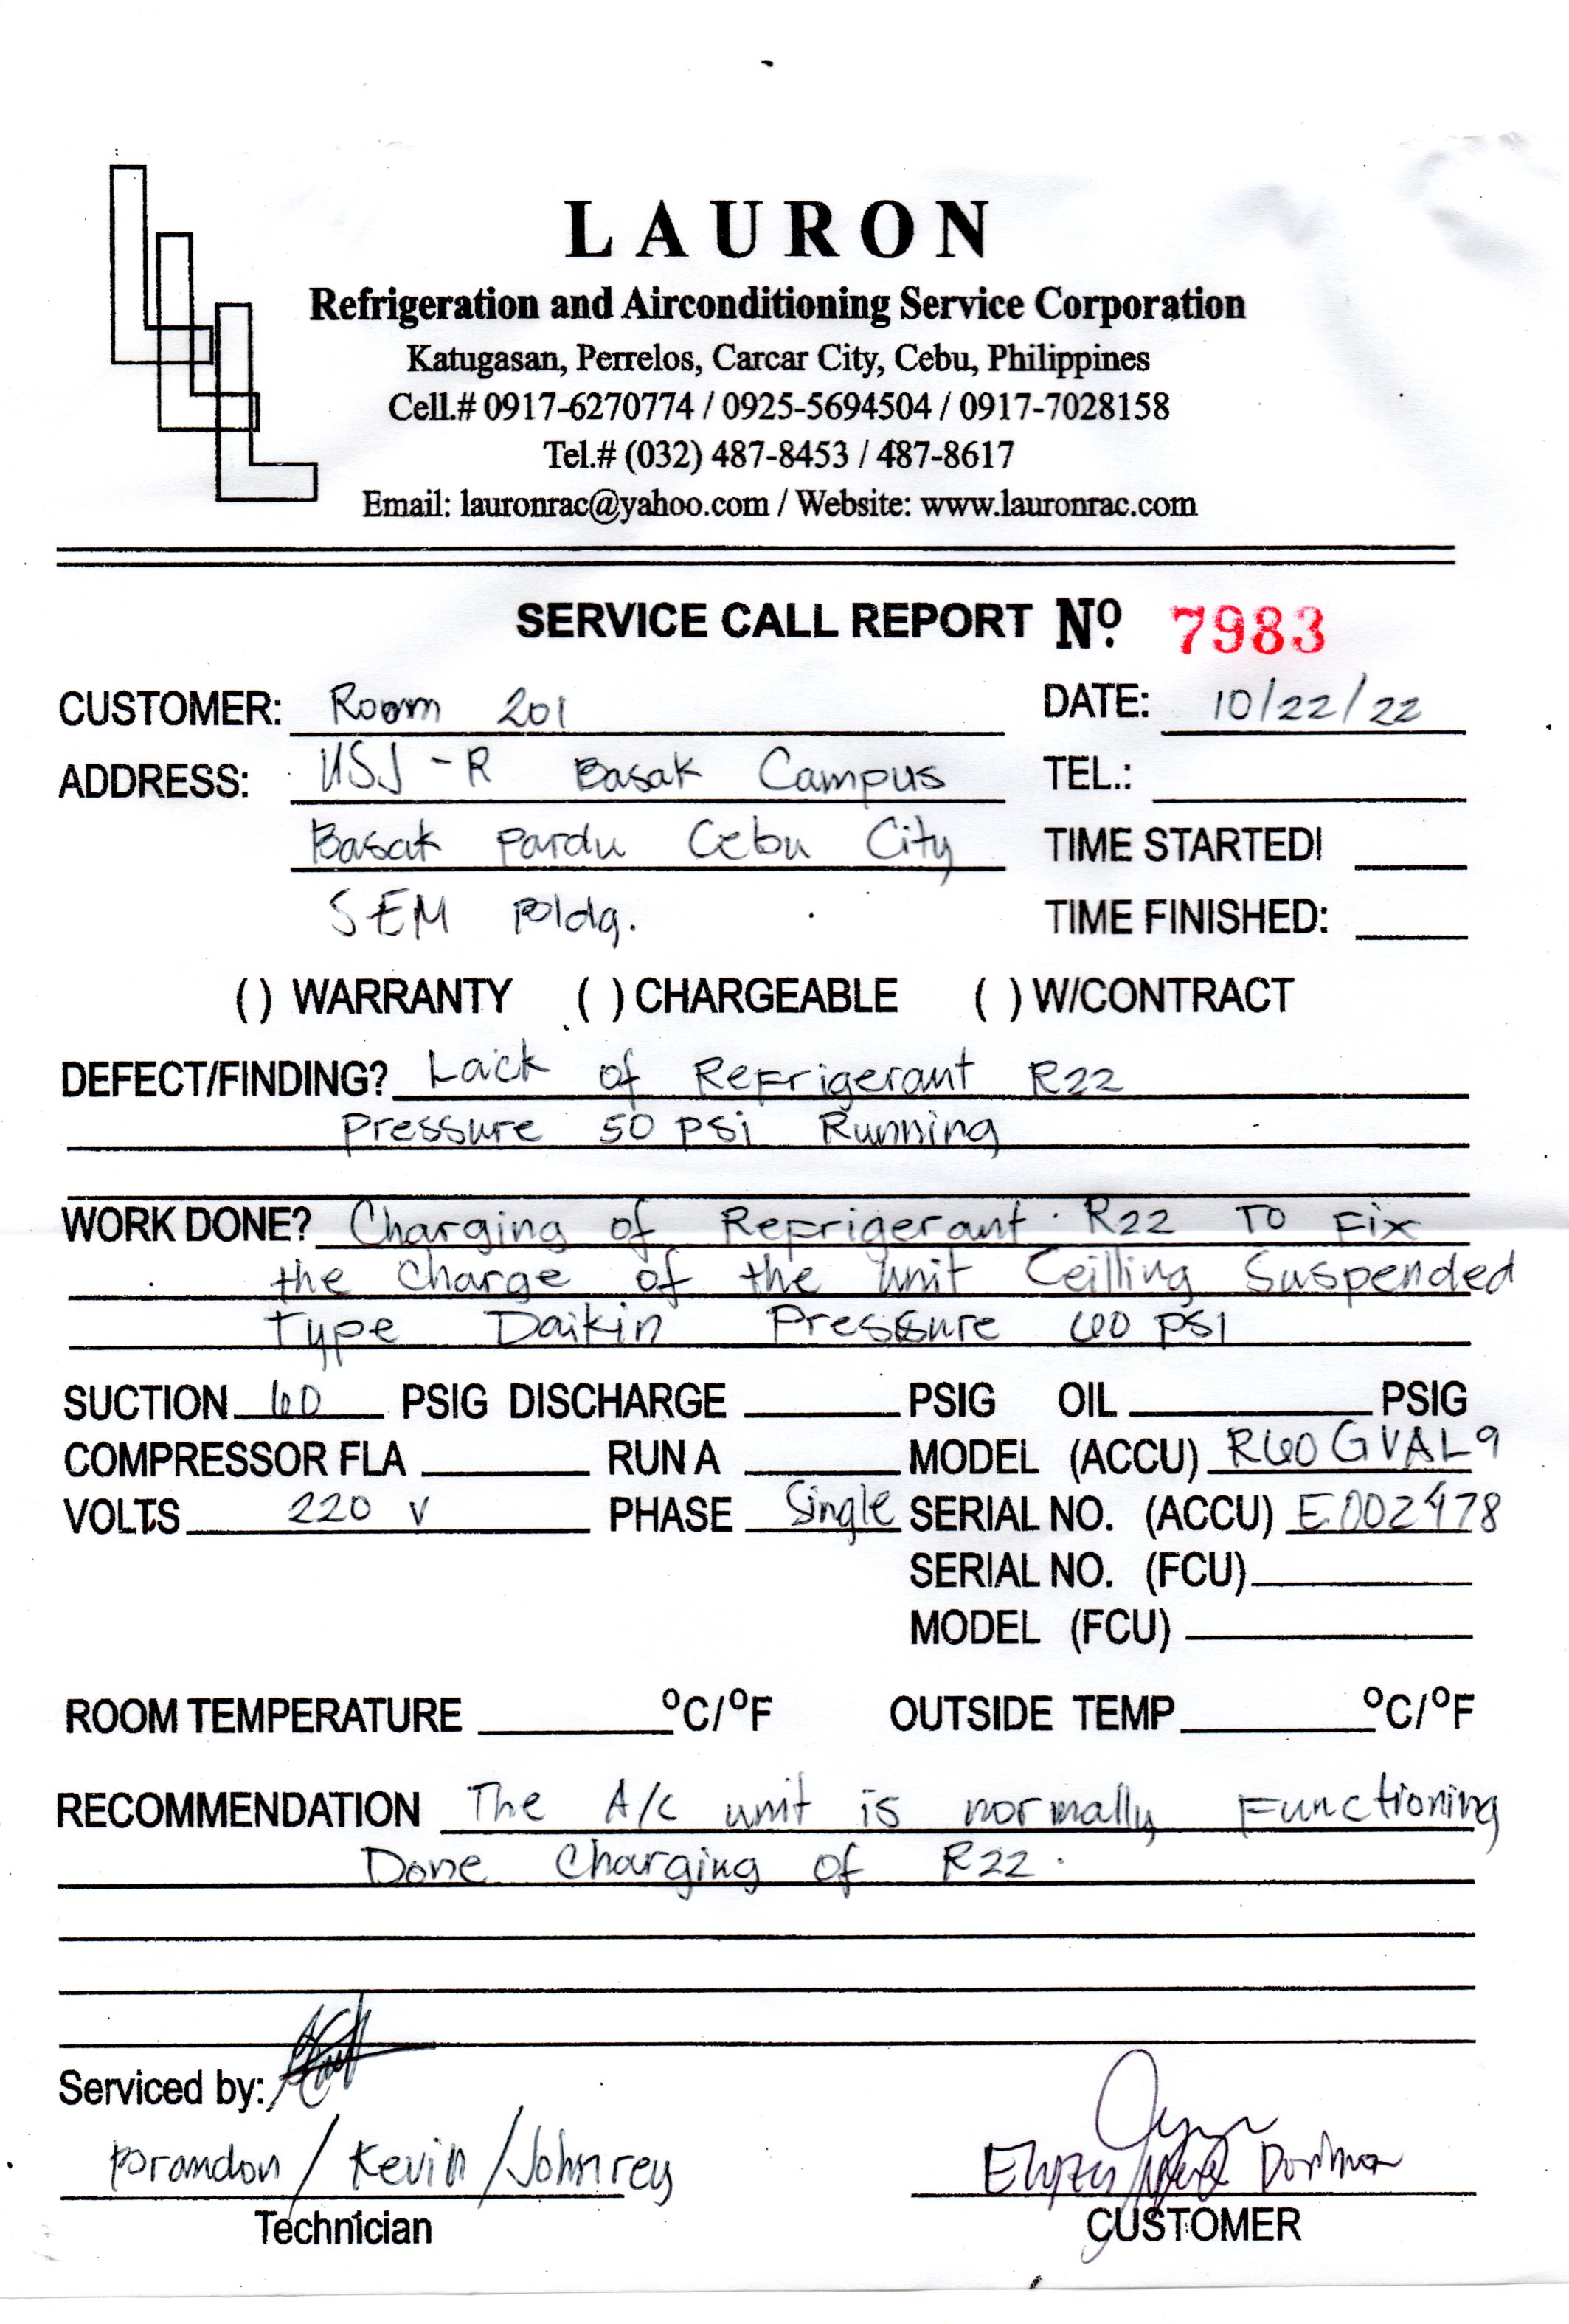 LAURON
Refrigeration and Airconditioning Service Corporation
Katugasan, Perrelos, Carcar City, Cebu, Philippines
Cell.# 0917-6270774 / 0925-5694504 / 0917-7028158
Tel.# (032) 487-8453 / 487-8617
Email: lauronrac@yahoo.com / Website: www.lauronrac.com
SERVICE CALL REPORT Nº. 7983
CUSTOMER: Room 201 DATE: 10/22/22
ADDRESS: USJ-R Basak Campus TEL.:
Basak Pardu Cebu City TIME STARTED!
SEM Bldg. TIME FINISHED:
( ) WARRANTY ( ) CHARGEABLE ( ) W/CONTRACT
DEFECT/FINDING? Lack of Refrigerant R22
Pressure 50 psi Running
WORK DONE? Charging of Refrigerant R22 To Fix
the Charge of the unit Ceilling Suspended
Type Daikin Pressure 60 psi
SUCTION 60 PSIG DISCHARGE PSIG OIL PSIG
COMPRESSOR FLA RUN A MODEL (ACCU) R60GVAL9
VOLTS 220 V PHASE Single SERIAL NO. (ACCU) E002478
SERIAL NO. (FCU)
MODEL (FCU)
ROOM TEMPERATURE ºC/ºF OUTSIDE TEMP ºC/ºF
RECOMMENDATION The A/C unit is normally Functioning
Done Charging of R22.
Serviced by:
Brandon / Kevin / Johnrey
Technician CUSTOMER